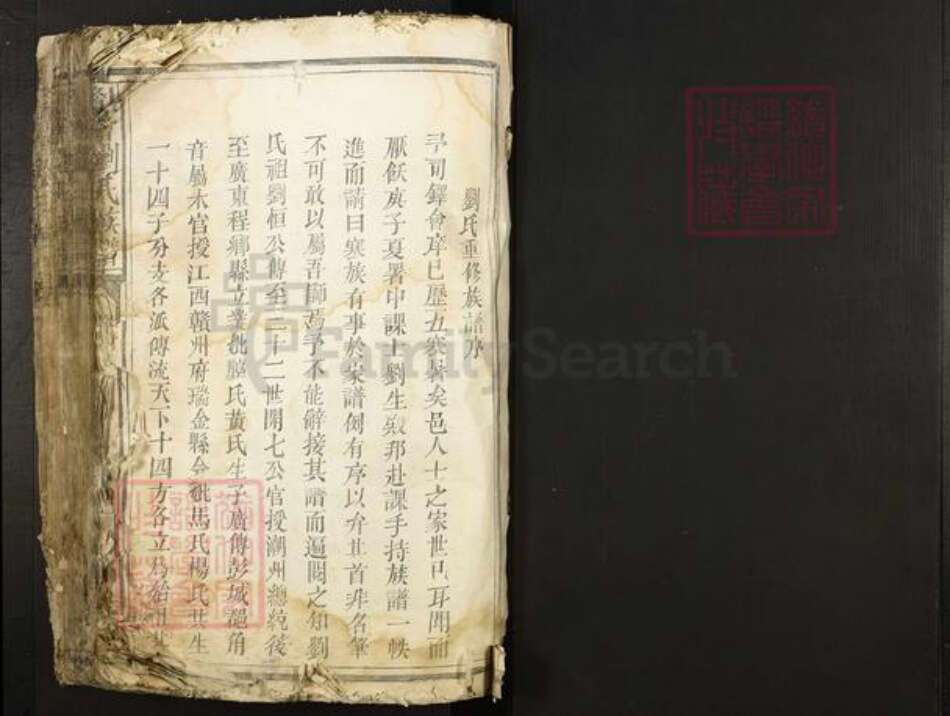 劉氏重修族譜序
予司鐸會庠已歷五寒暑矣邑人士之家世已耳聞而
厭飫庚子夏署中課士劉生殿邦赴課手持族譜一帙
進而請曰寒族有事於家譜例有序以弁其首非名筆
不可敢以屬吾師焉予不能辭接其譜而遍閱之知劉
氏祖劉恒公傳至二十二世開七公官授潮州總統後
至廣東程鄉縣立業妣 氏黃氏生子廣傳彭城 角
音屬木官授江西贛州府瑞金縣令妣馬氏楊氏共生
一十四子分支各派傳流天下十四方各立為始
劉氏族譜
FamilySearch